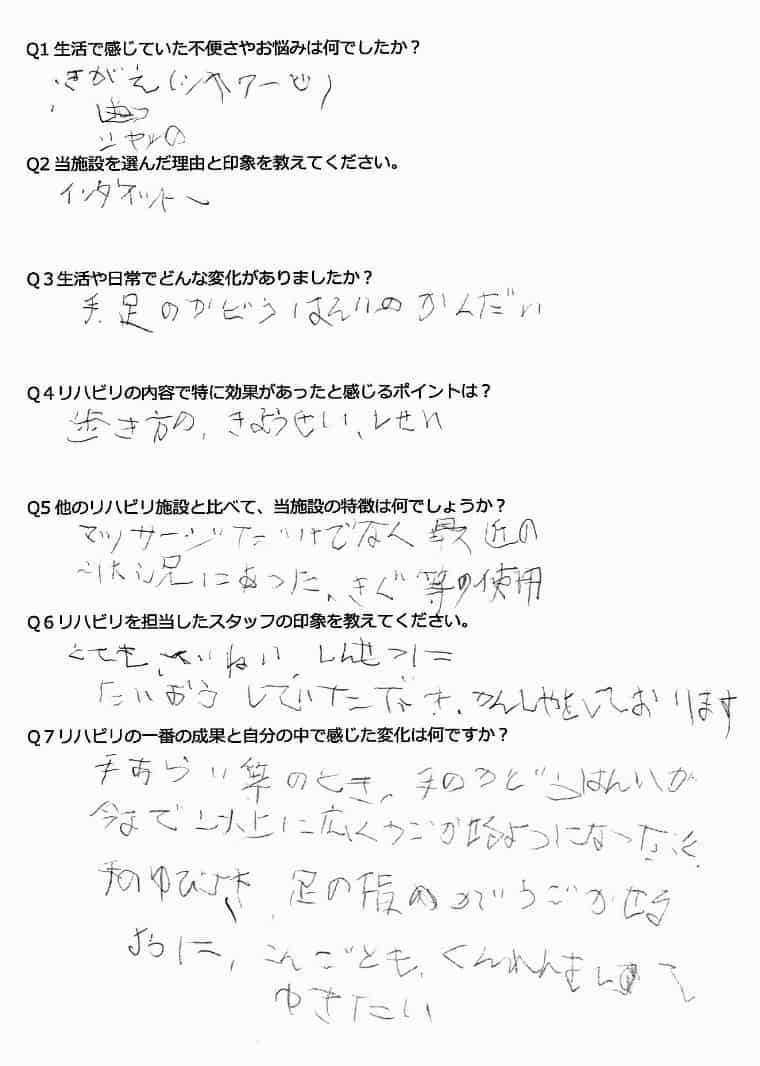 Q1 生活で感じていた不便さやお悩みは何でしたか？
きがえ（シャワーど）
シャツの
Q2 当施設を選んだ理由と印象を教えてください。
インタネット
Q３生活や日常でどんな変化がありましたか？
手.足のかどうはんいのかんだい
Q４リハビリの内容で特に効果があったと感じるポイントは？
歩き方の、きょうせい、しせい
Q5 他のリハビリ施設と比べて、当施設の特徴は何でしょうか？
マッサージだけでなく 最近の
にあった、きぐ等の使用
Q６リハビリを担当したスタッフの印象を教えてください。
とても、ていねい、しんせつに
たいおうしていただき、かんしゃをしております
Q７リハビリの一番の成果と自分の中で感じた変化は何ですか？
手あらい等のとき、手のかどうはんいが
今まで以上に広くうごか始ようになった
手のゆびさき、足の指の うごかせる
ように、こんごとも、くんれんをして
ゆきたい